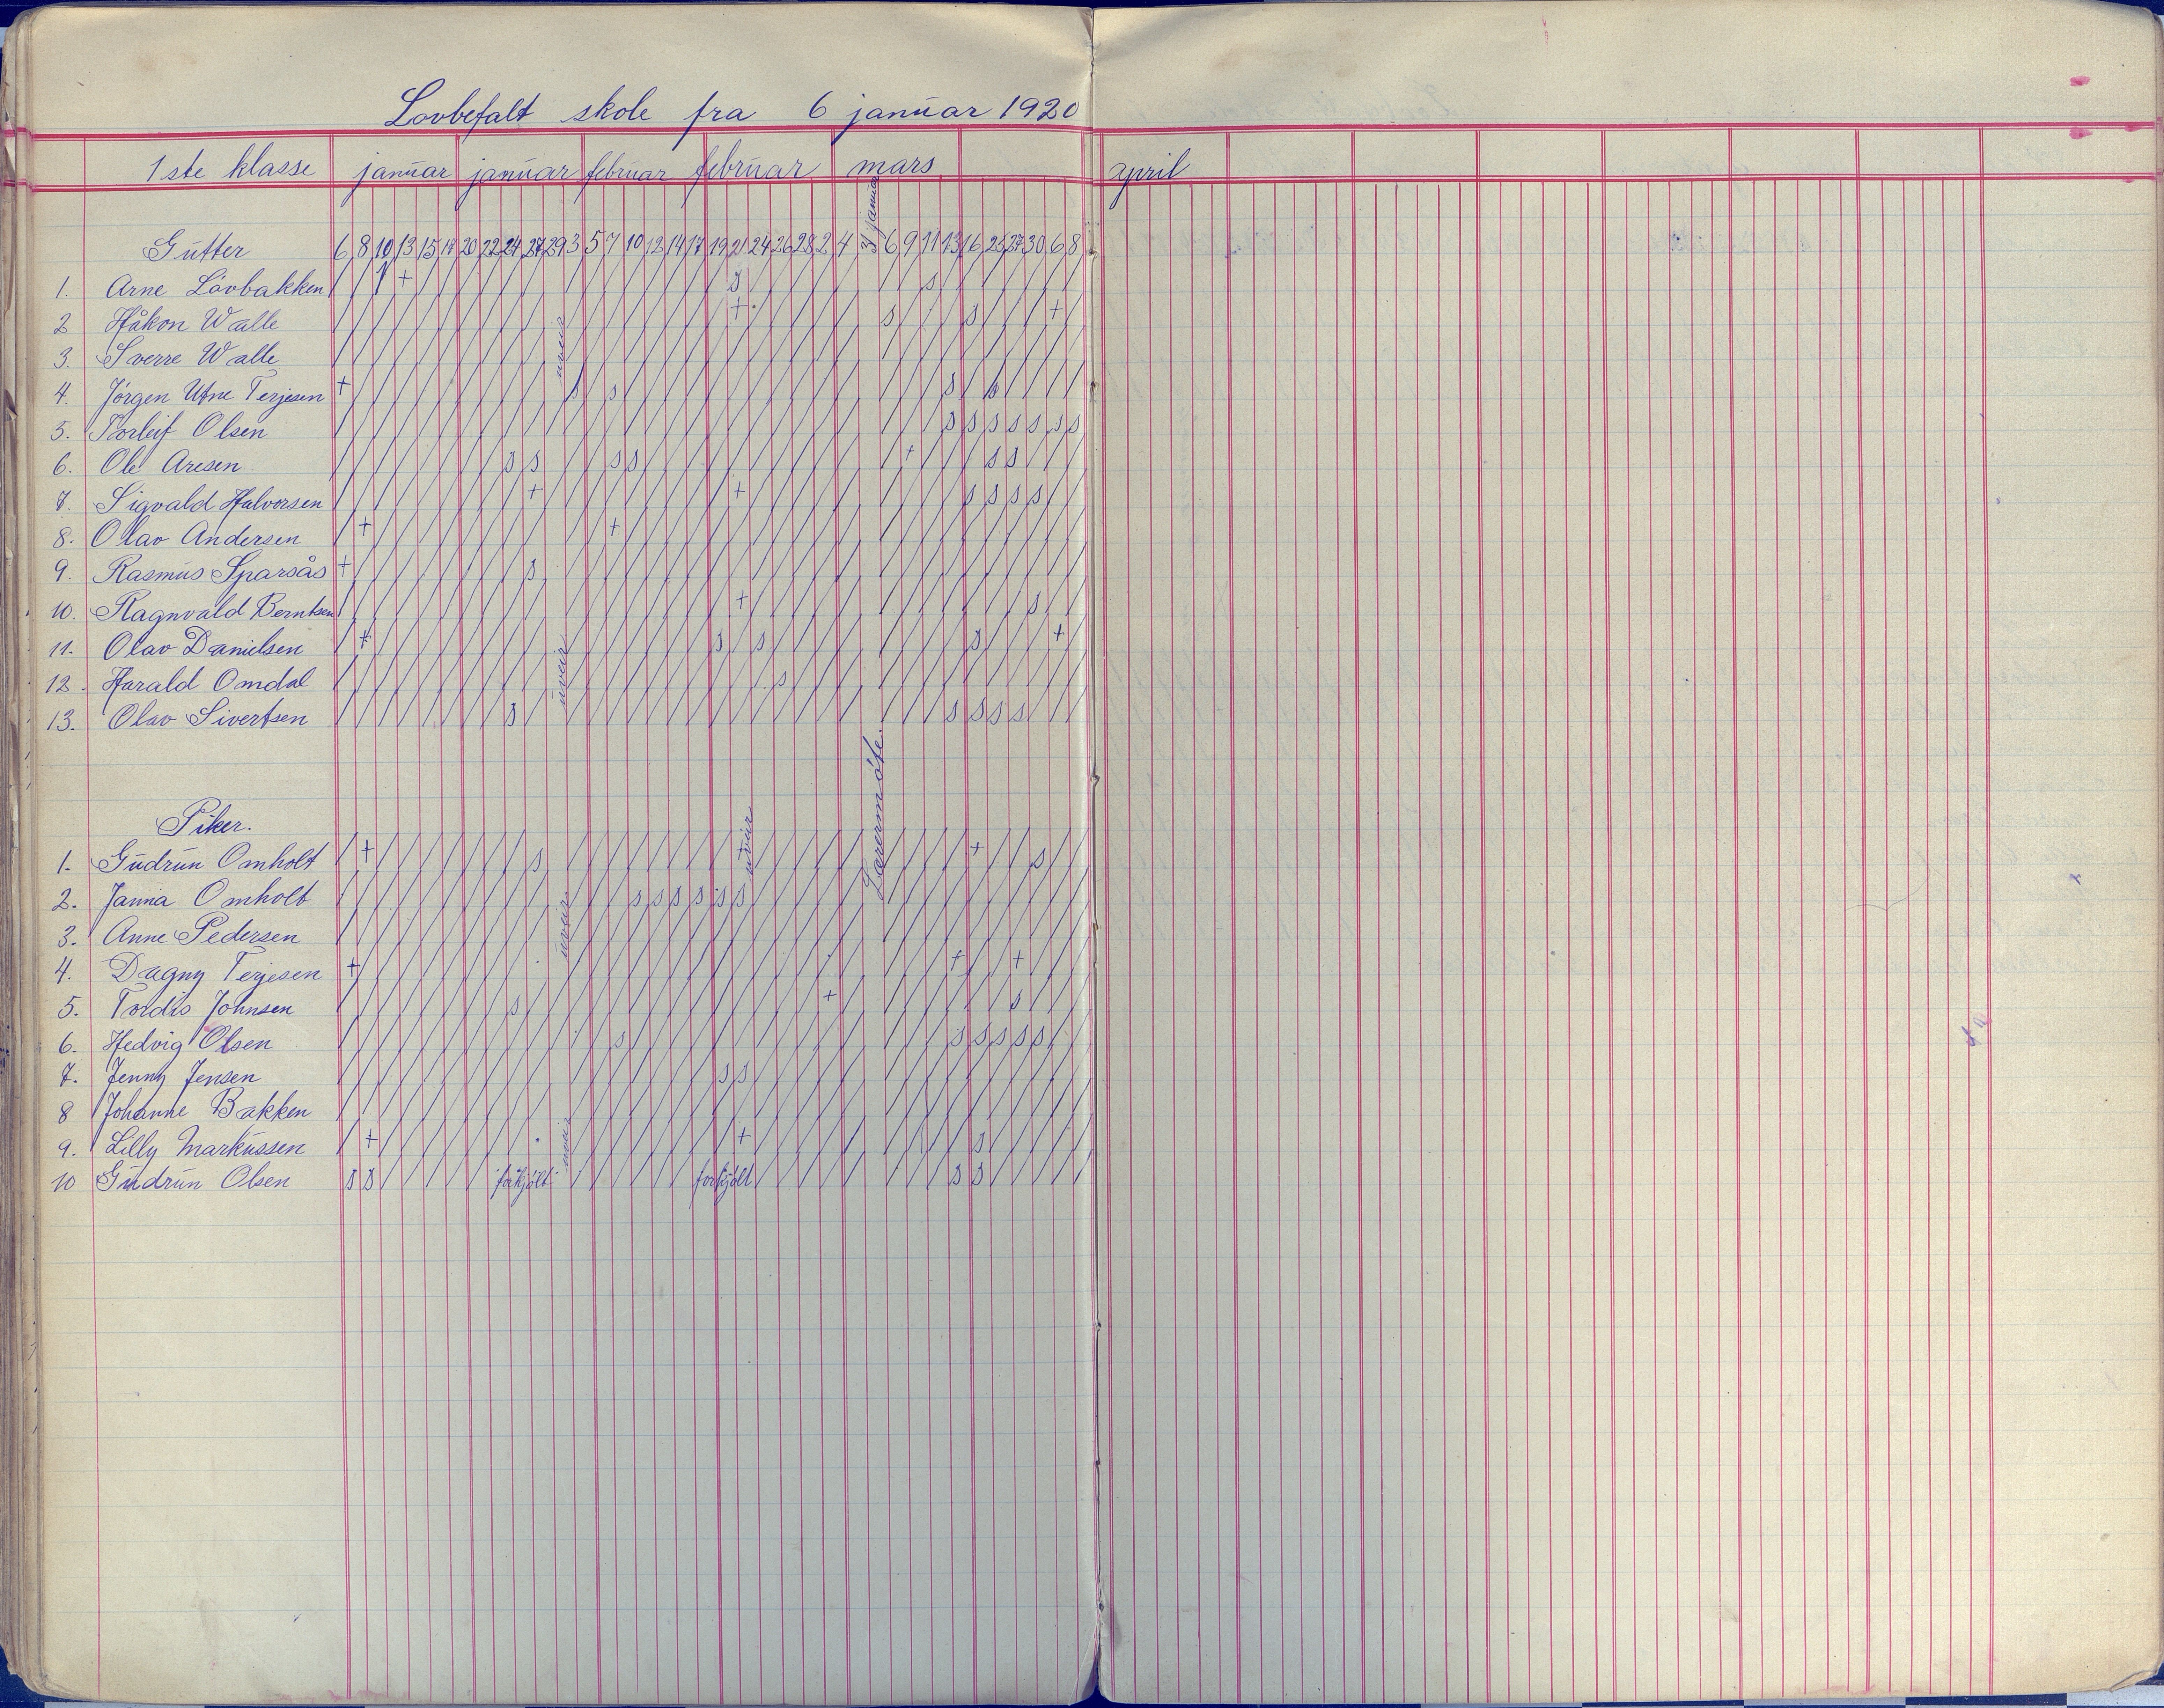 Lovbefalt skole fra 6 januar 1920
1ste klasse januar januar februar februar mars april
Gutter 6 8 10 13 15 17 20 22 24 27 29 3 5 7 10 12 14 17 19 21 24 26 28 2 4 31 januar 6 9 11 13 16 25 27 30 6 8
1. Arne Lövbakken
2 Håkon Walle
3. Sverre Walle
4. Jörgen Utne Terjesen
5. Torleif Olsen
6. Ole Aresen
7. Sigvald Halvorsen
8. Olav Andersen
9. Rasmus Sparsås
10. Ragnvald Berntsen
11. Olav Danielsen
12. Harald Omdal
13. Olav Sivertsen
uveir
uveir
Lærermöte.
Piker.
1. Gudrun Omholt
2. Janna Omholt
3. Anne Pedersen
4. Dagny Terjesen
5. Tordis Johnsen
6. Hedvig Olsen
7. Jenny Jensen
8 Johanne Bakken
9. Lilly Markussen
10 Gudrun Olsen s s forkjölt forkjölt s s
uveir
uveir
uveir